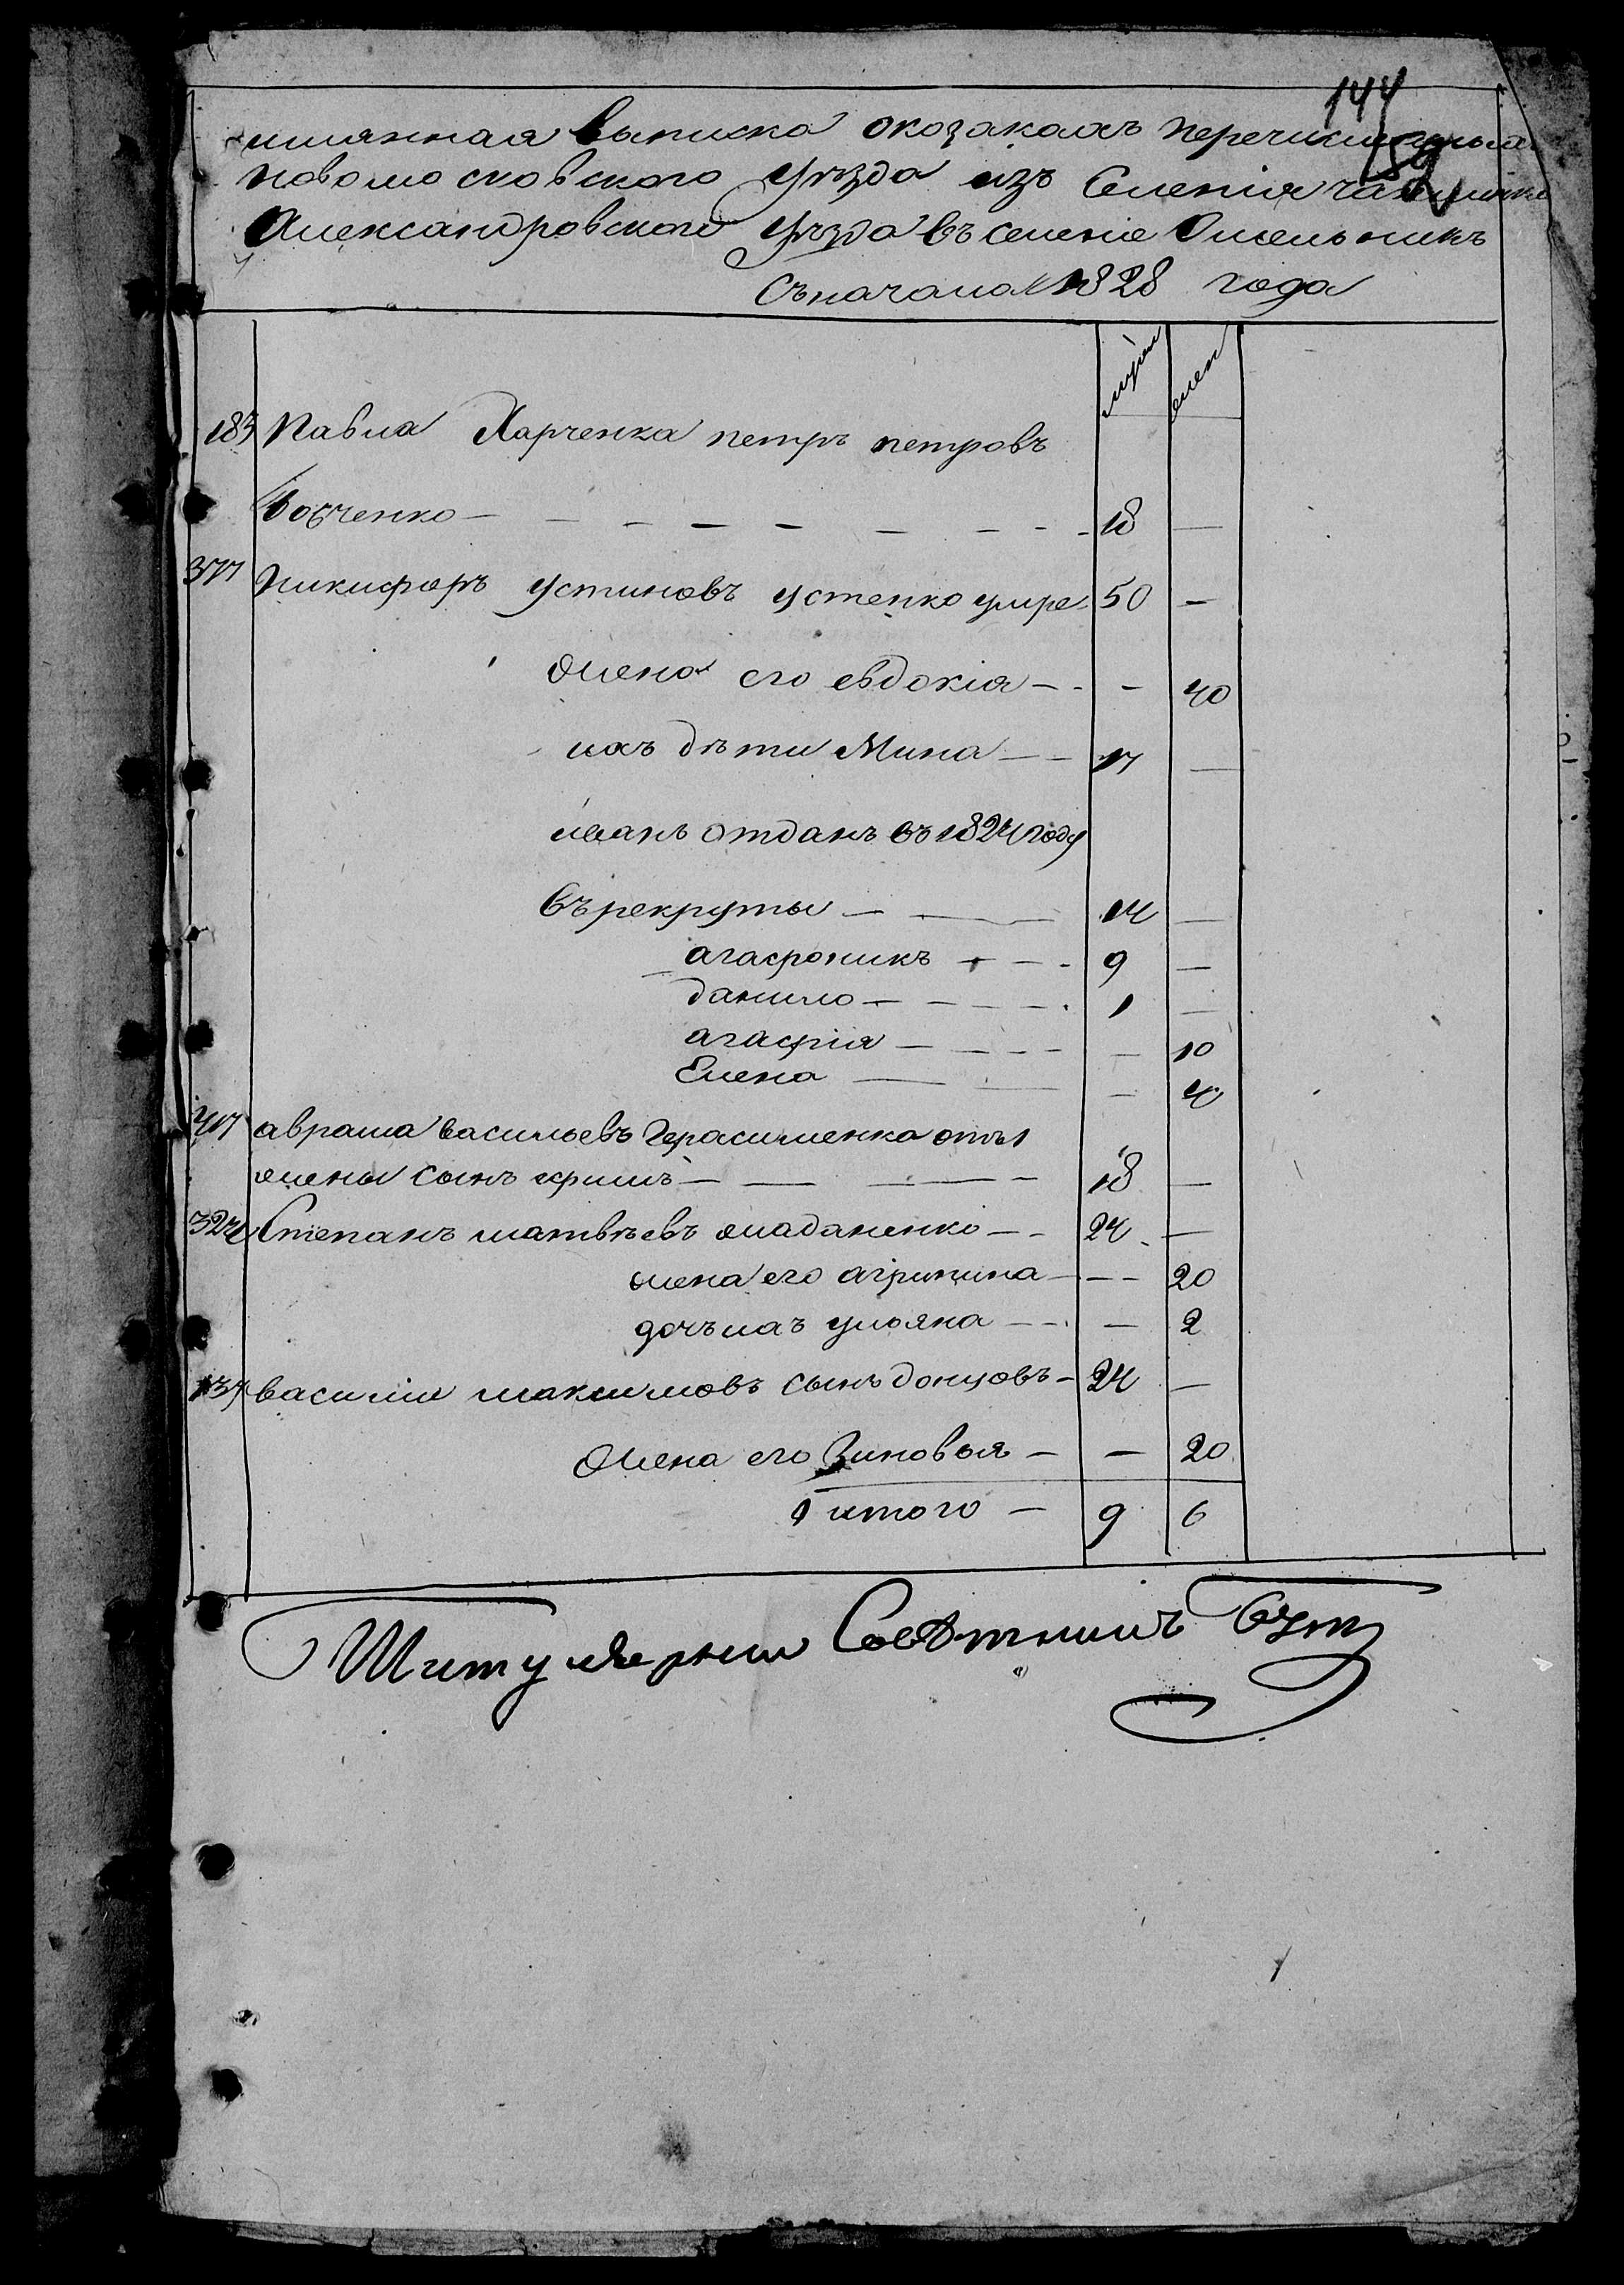 144
имянная выписка оказакахъ перечисленныхъ
новомосковского уѣзда изъ Селенія
Александровского уѣзда въ селеніе Омельникъ
Съначала 1828 года
мужс женс
183 Павла Харченка петръ петровъ
Вовченко — 18 —
377 Никифоръ Устиновъ Устенко умре 50 —
Жена его евдокія — — 40
ихъ дѣти Мина — 17 —
иванъ отданъ въ 1824 году
въ рекруты — 14 —
агафоникъ — 9 —
данило — 1 —
агафія — — 10
Елена — — 4
417 аврама васильевъ Герасименка отъ 1
жены сынъ ефимъ — 18 —
324 Степанъ матвѣевъ — 24 —
жена его агрипина — — 20
дочь ихъ ульяна — — 2
137 василій максимовъ сынъ донцовъ — 24 —
Жена его Зиновья — — 20
итого — 9 6
Титулярный Совѣтникъ